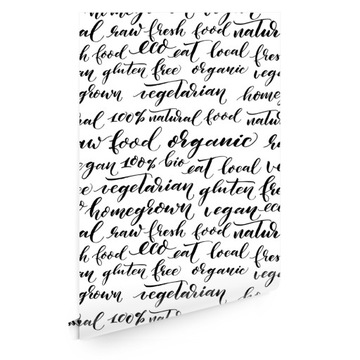 homegrown vegan
al raw fresh food natur
sh food eco eat local fresh
an gluten free organic vega
grown vegetarian homeg
ral 100% natural food natur
aw food organic
egan 100% bio eat local v
e vegetarian gluten fr
o homegrown vegan eco
al raw fresh food natur
sh food eco eat local fresh
an gluten free organic vega
grown vegetarian
ral 100% natural food